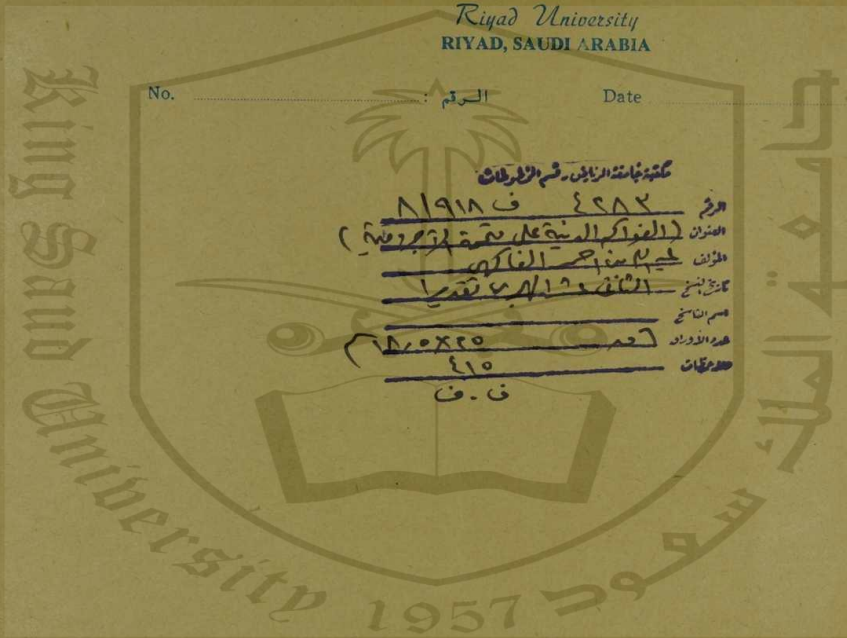 Riyad University
RIYAD, SAUDI ARABIA
No. الرقم : Date
مكتبة جامعة الرياض - قسم المخطوطات
الرقم ٤٢٨٣ ف ٨١٩١٨
العنوان (الفواكه الجنية على متممة الآجرومية)
المؤلف بن احمد الفاكهي
تاريخ النسخ الثاني عشر الهجري تقديرا
اسم الناسخ
عدد الأوراق ٢٥×١٨,٥
ملاحظات ٤١٥
ف . ف
King Saud University 1957 جامعة الملك سعود